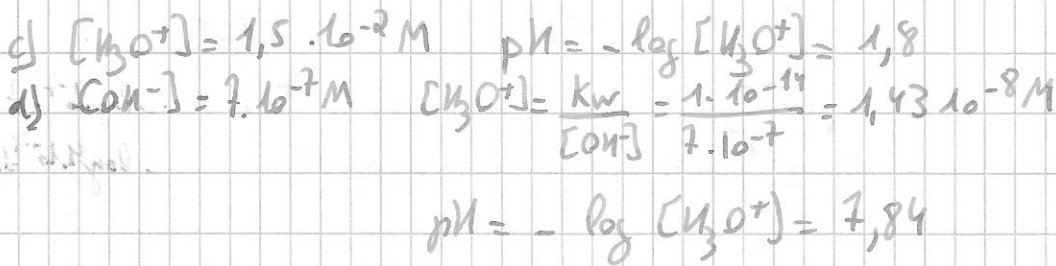 c) [H₃O⁺] = 1,5 · 10⁻² M pH = - log [H₃O⁺] = 1,8
d) [OH⁻] = 7 · 10⁻⁷ M [H₃O⁺] = Kw / [OH⁻] = 1 · 10⁻¹⁴ / 7 · 10⁻⁷ = 1,43 10⁻⁸ M
pH = - log [H₃O⁺] = 7,84